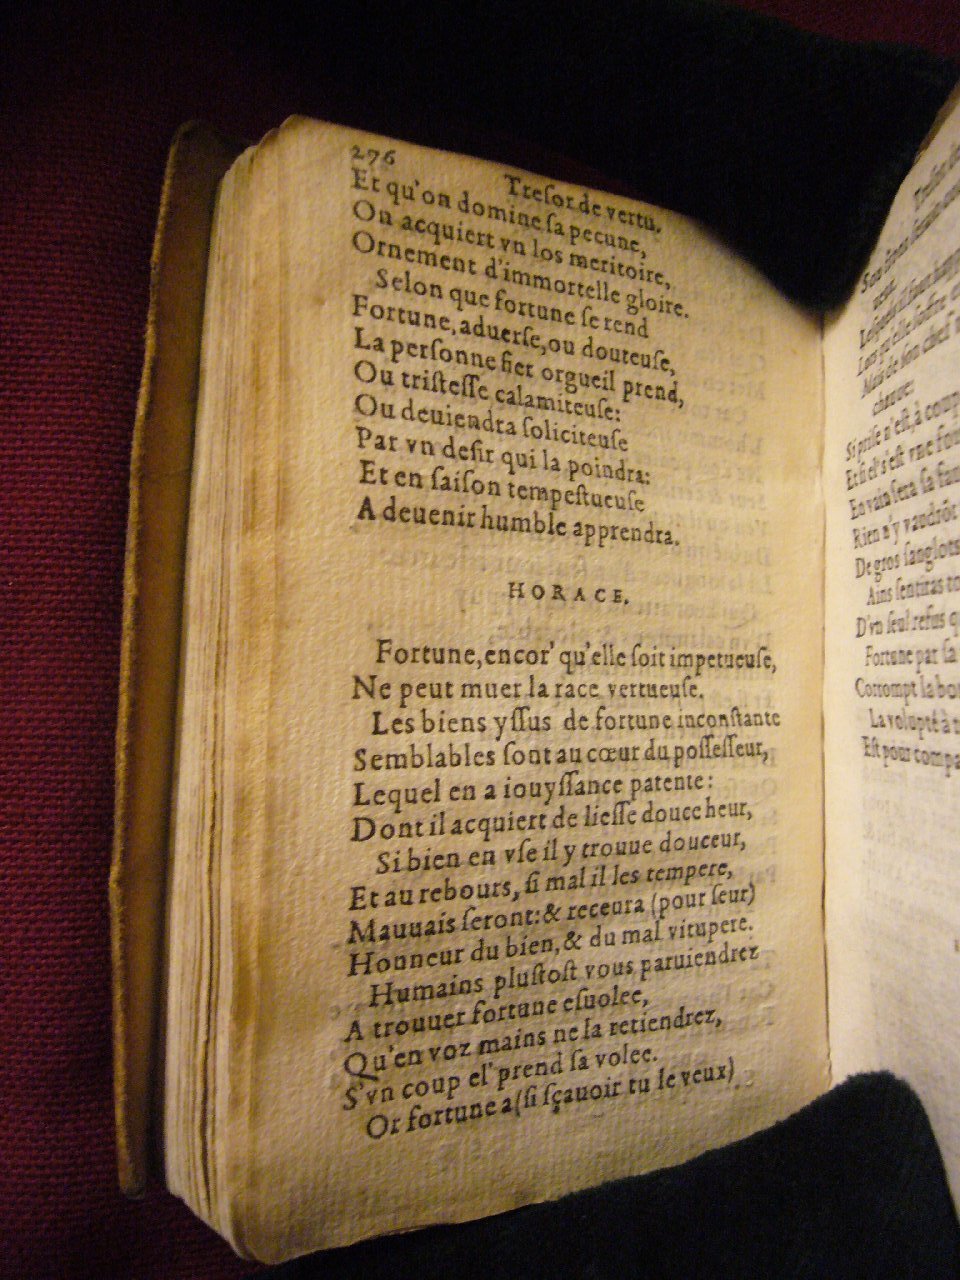 276
Tresor de vertu.
Et qu'on domine sa pecune,
On acquiert vn los meritoire,
Ornement d'immortelle gloire.
Selon que fortune se rend
Fortune, aduerse, ou douteuse,
La personne fier orgueil prend,
Ou tristesse calamiteuse:
Ou deuiendra soliciteuse
Par vn desir qui la poindra:
Et en saison tempestueuse
A deuenir humble apprendra.
HORACE.
Fortune, encor' qu'elle soit impetueuse,
Ne peut muer la race vertueuse.
Les biens yssus de fortune inconstante
Semblables sont au cœur du possesseur,
Lequel en a iouyssance patente:
Dont il acquiert de liesse douce heur,
Si bien en vse il y trouue douceur,
Et au rebours, si mal il les tempere,
Mauuais seront: & receura (pour seur)
Honneur du bien, & du mal vitupere.
Humains plustost vous paruiendrez
A trouuer fortune esuolee,
Qu'en voz mains ne la retiendrez,
S'vn coup el' prend sa volee.
Or fortune a (si sçauoir tu le veux)
Si prise n'est, à coup
Et si el' s'est vne
En vain sera sa
Rien n'y vaudrōt
De gros sanglots
Ains sentiras
D'vn seul refus
Fortune par sa
Corrompt la
La volupté à
Est pour